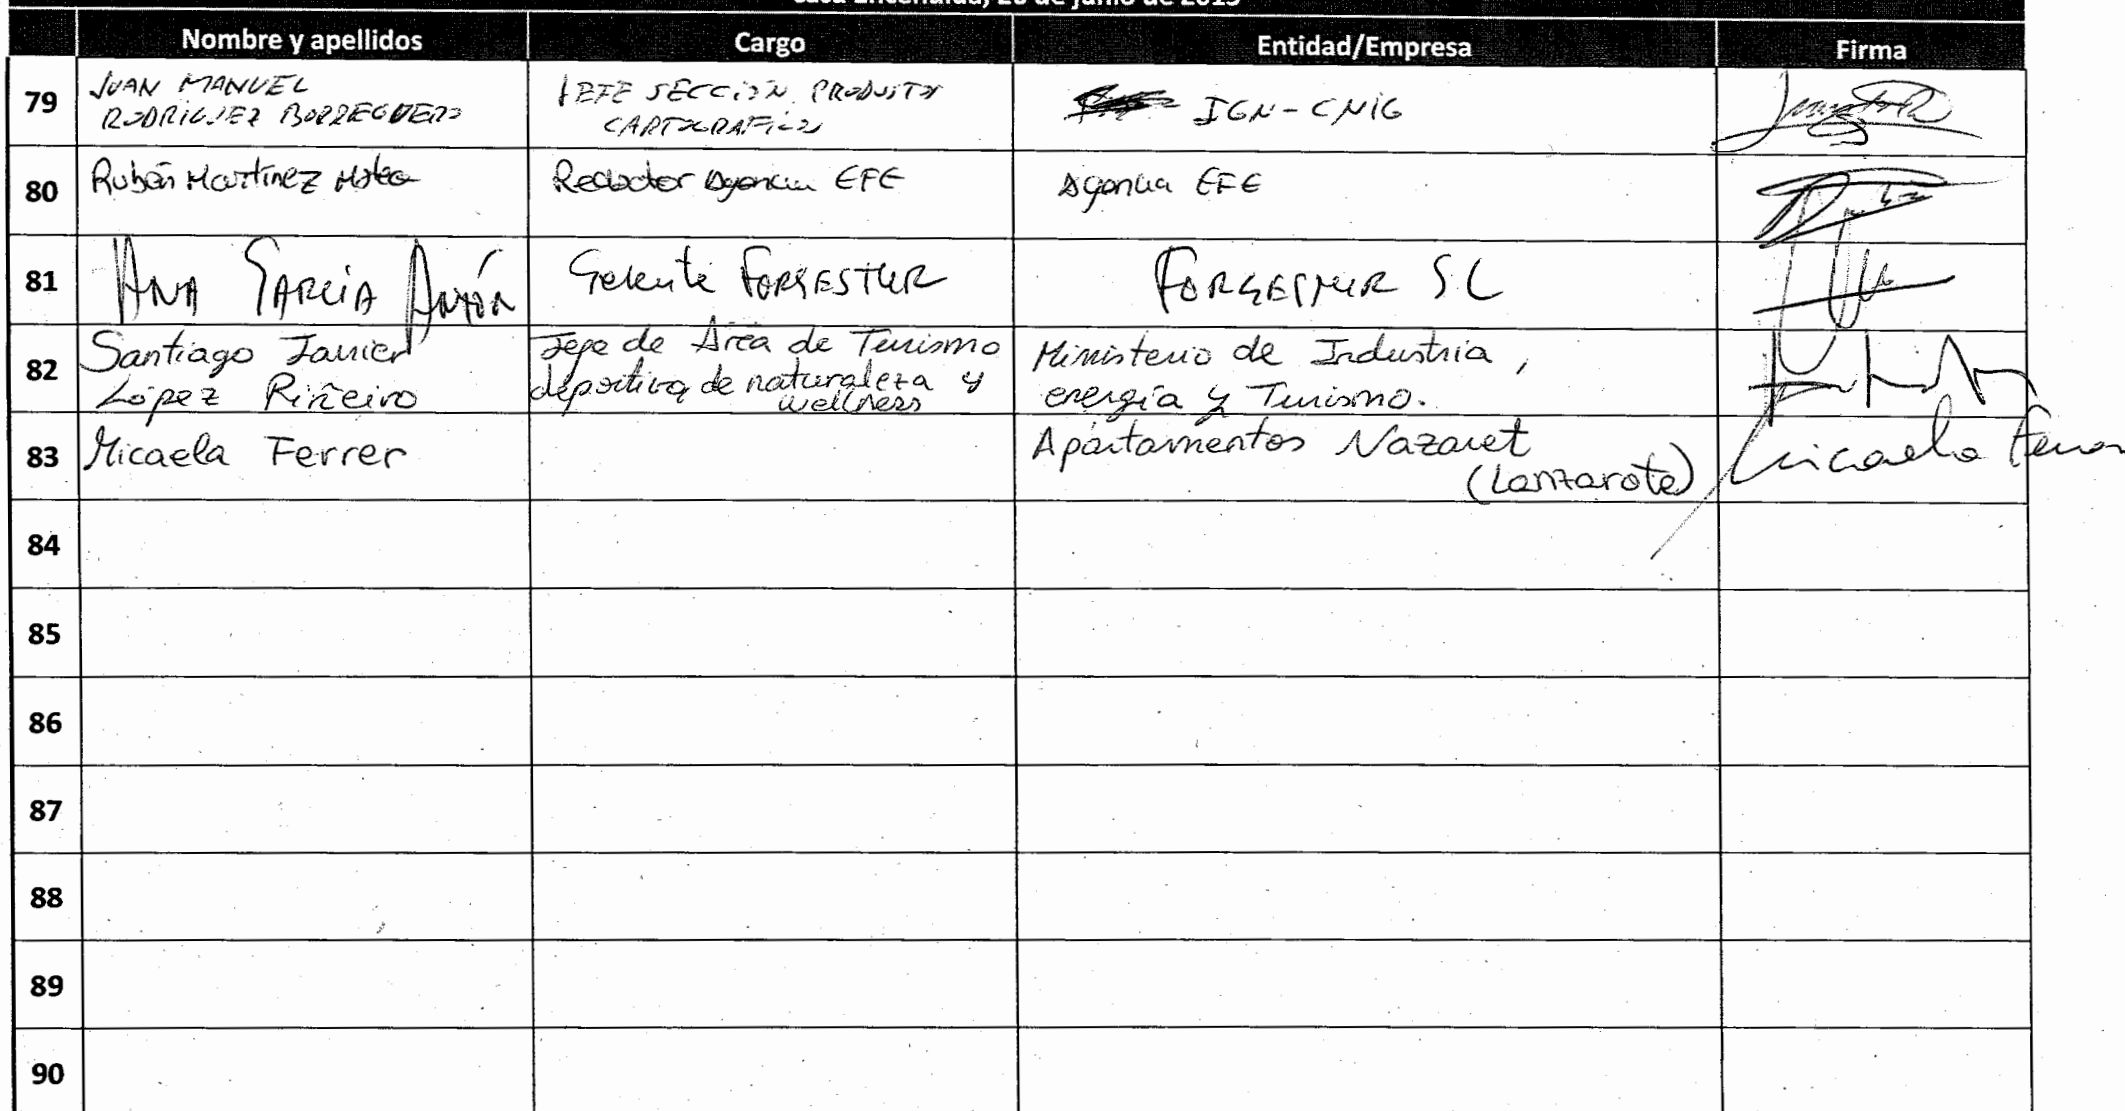 Nombre y apellidos Cargo Entidad/Empresa Firma
79 JUAN MANUEL
RODRIGUEZ BORREGUERO
JEFE SECCIÓN PRODUCTOS
CARTOGRAFICOS
IGN-CNIG
80 Rubén Martínez Mateo Redactor Agencia EFE Agencia EFE
81 ANA GARCÍA ANTÓN Gerente FORGESTUR FORGESTUR SL
82 Santiago Javier
López Piñeiro
Jefe de Área de Turismo
deportivo, de naturaleza y
wellness
Ministerio de Industria,
energía y Turismo.
83 Micaela Ferrer
Apartamentos Nazaret
(Lanzarote)
Micaela Ferrer
84
85
86
87
88
89
90